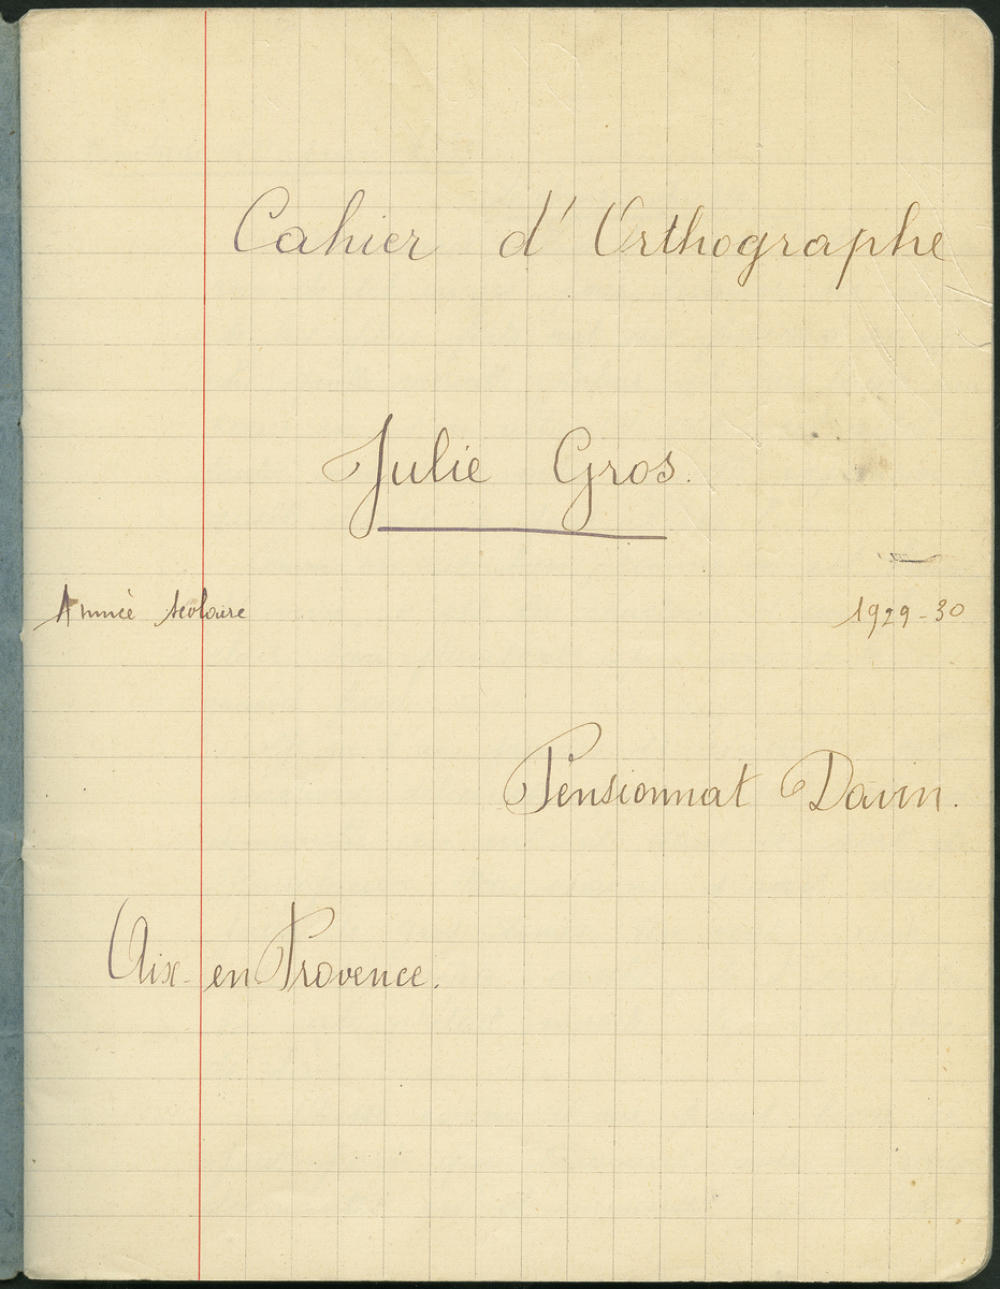 Cahier d'Orthographe
Julie Gros.
Année scolaire 1929-30
Pensionnat Davin.
Aix-en Provence.